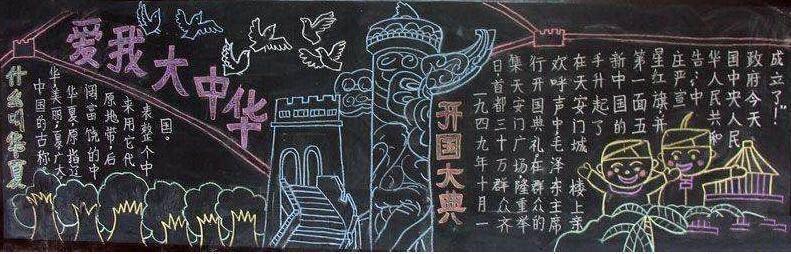 爱我大中华
什么叫华夏
中国的古称
华·美丽夏广大
华夏,原指辽
阔富饶的中
原地带,后
来用它代
表整个中
国。
开国大典
一九四九年十月一
日,首都三十万群众齐
集天安门广场,隆重举
行开国典礼,在群众的
欢呼声中毛泽东主席
在天安门城楼上亲
手升起了
新中国的
第一面五
星红旗,并
庄严宣
告:"中
华人民共和
国中央人民
政府今天
成立了!"